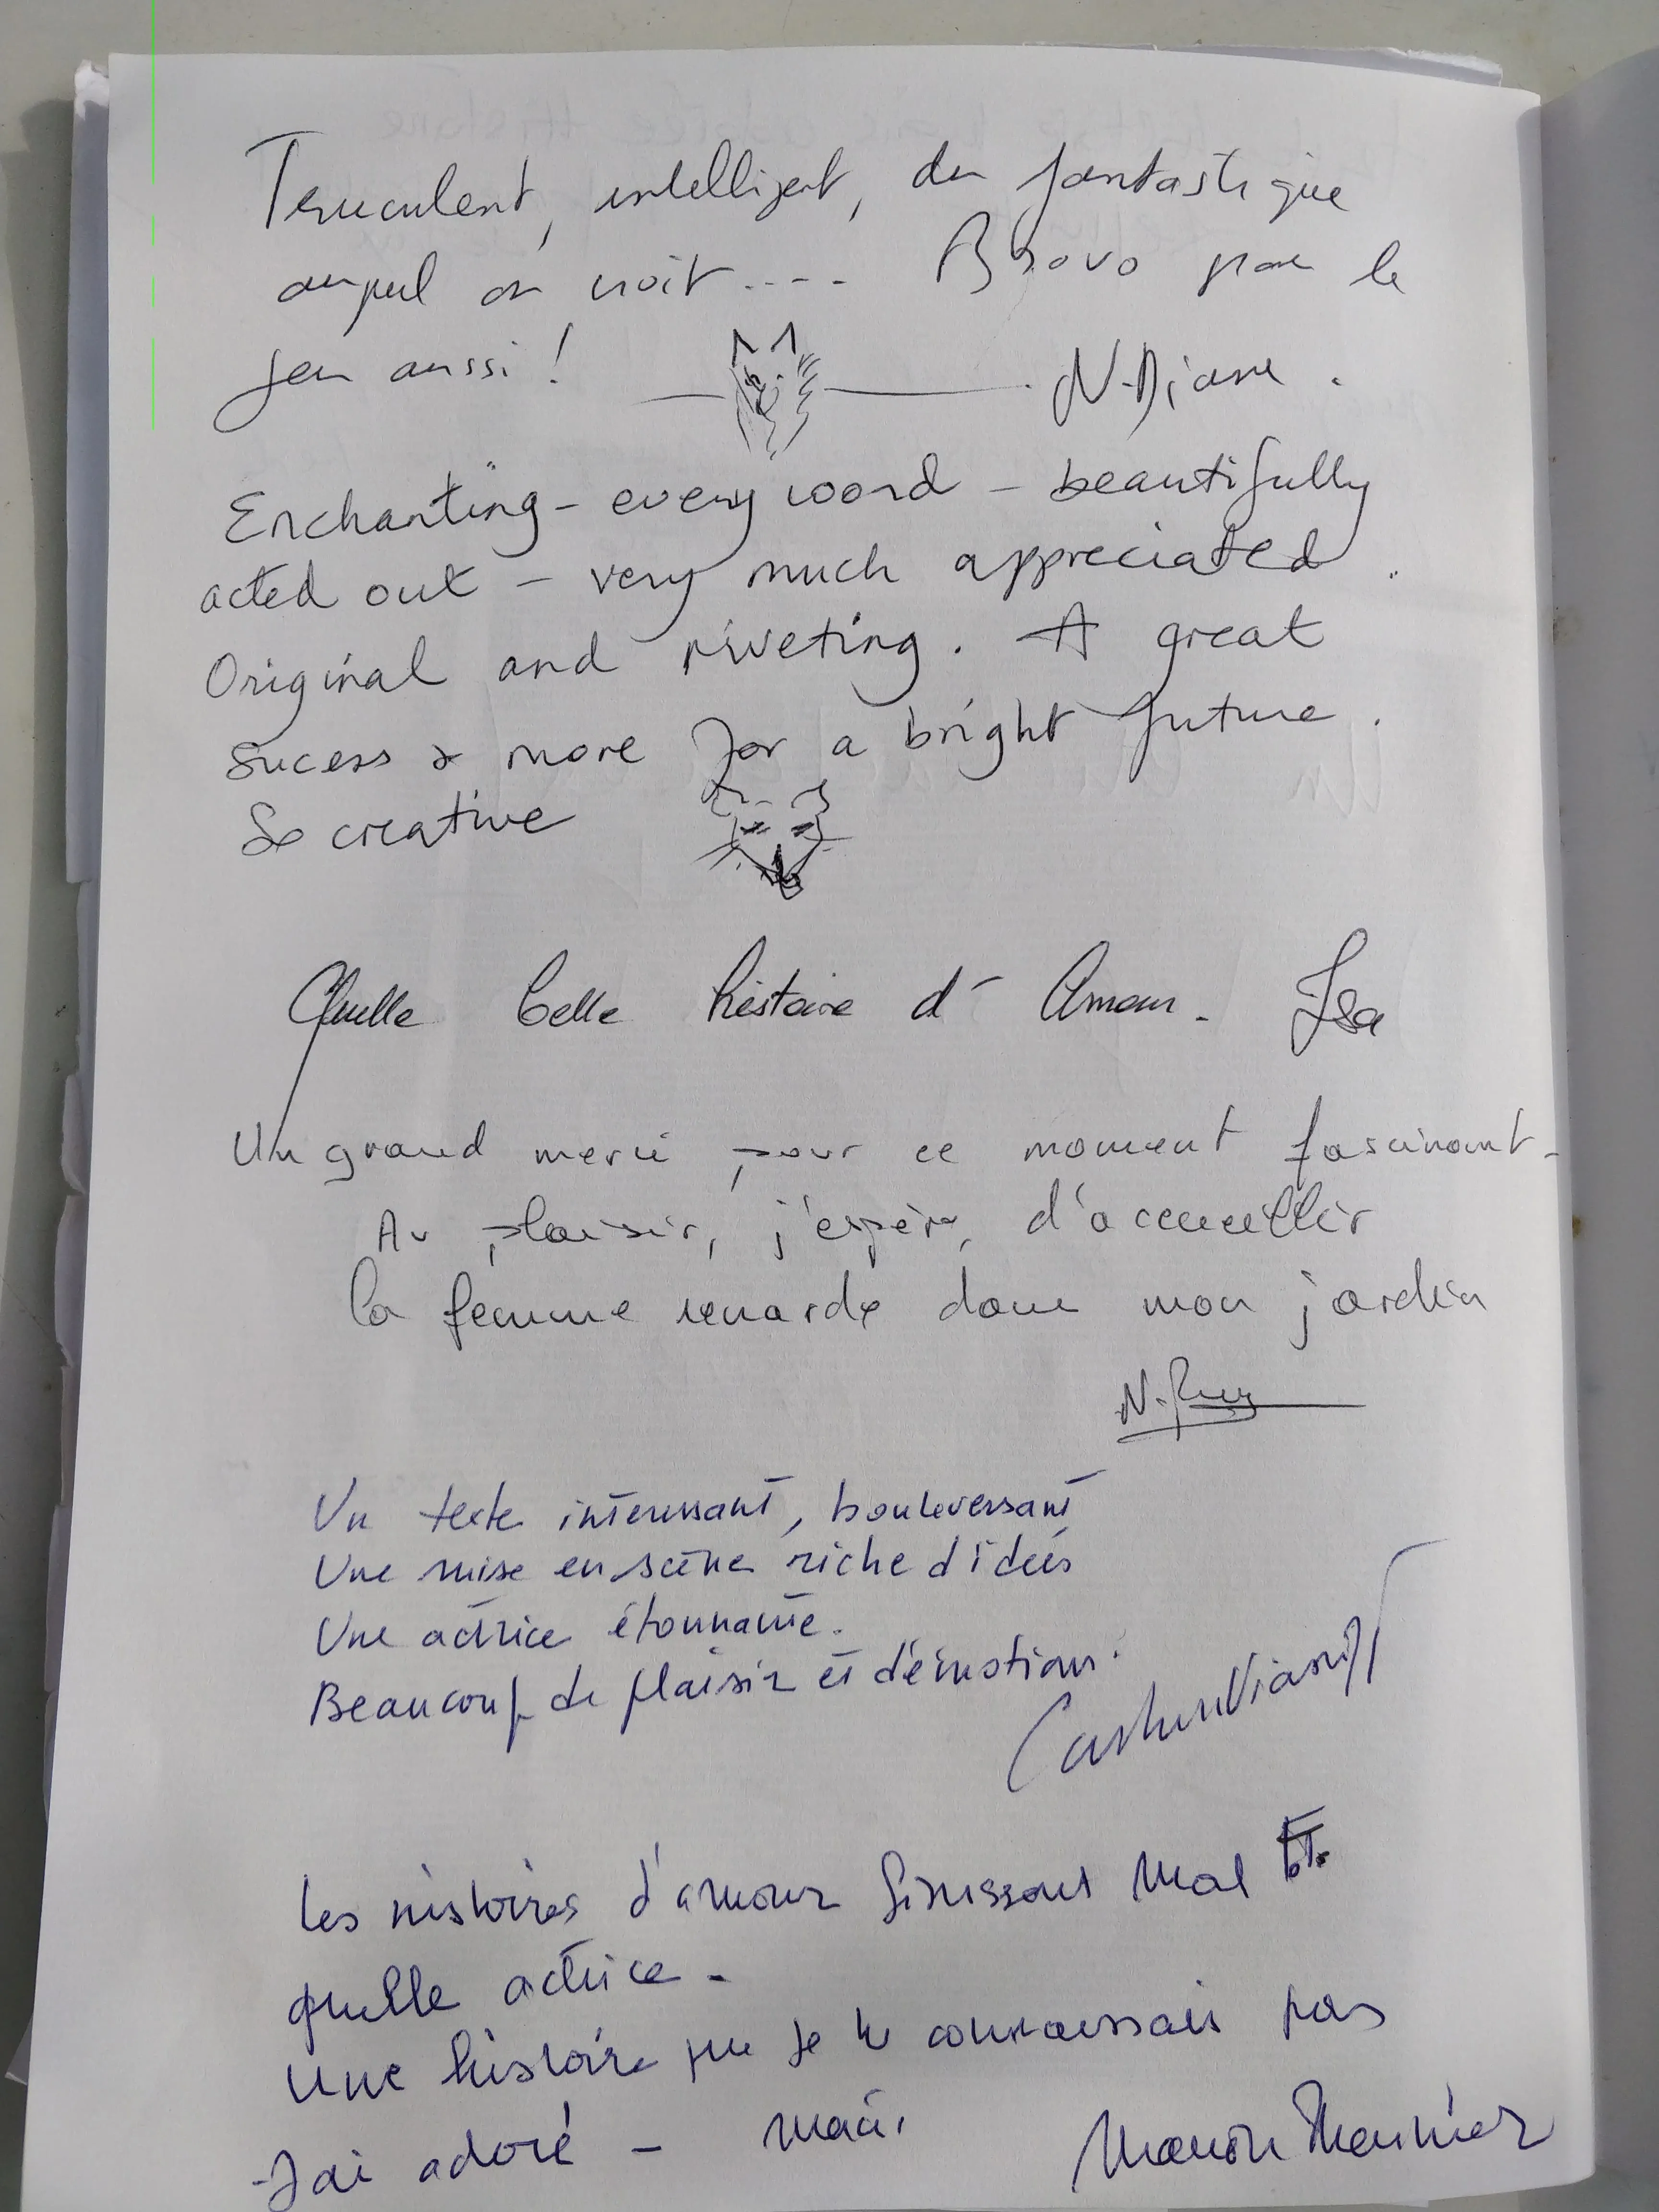 Truculent, intelligent, du fantastique
auquel on croit.... Bravo pour le
jeu aussi!
N. Diane.
Enchanting - every word - beautifully
acted out - very much appreciated.
Original and riveting. A great
sucess & more for a bright future.
So creative
Quelle belle histoire d'Amour. Isa
Un grand merci pour ce moment fascinant.
Au plaisir, j'espère, d'accueillir
la femme renarde dans mon jardin
N.
Un texte intéressant, bouleversant
Une mise en scène riche d'idées
Une actrice étonnante.
Beaucoup de plaisir et d'émotions.
Les histoires d'amour finissent mal Et
quelle actrice.
Une histoire que je ne connaissais pas
J'ai adoré - Merci,
Manon Meunier